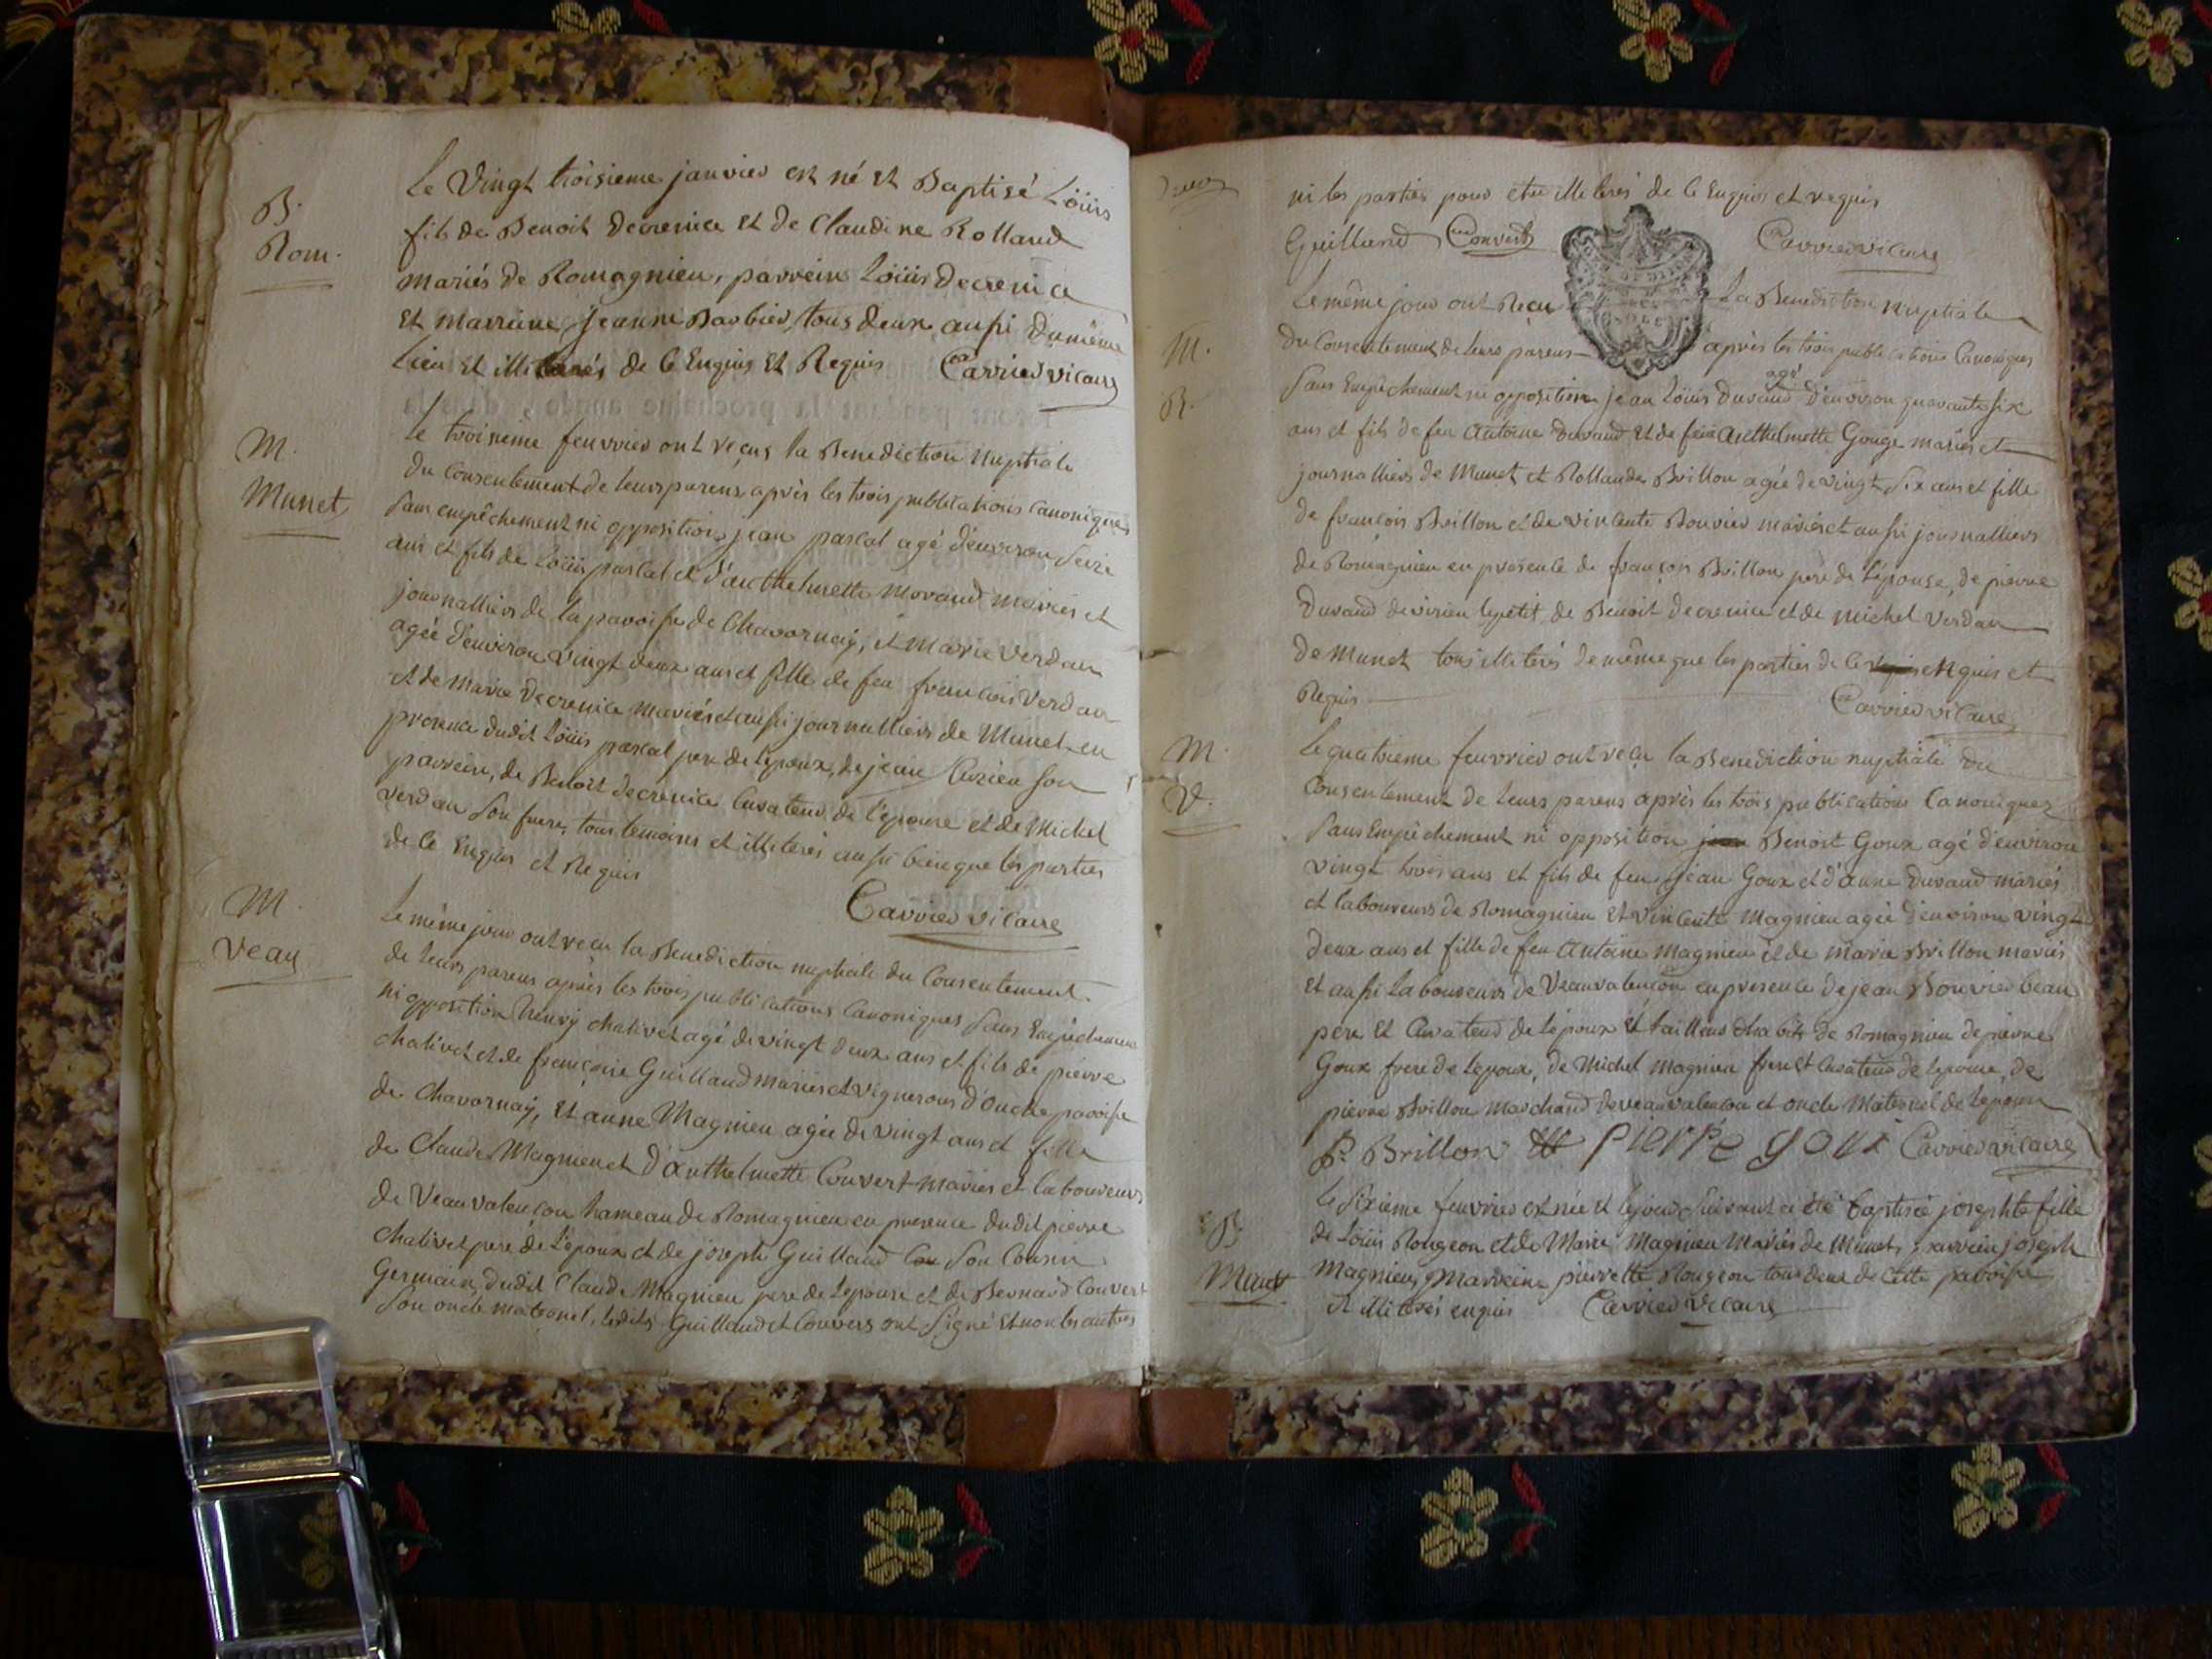 B.
Rom.
Le Vingt troisieme janvier est né et Baptisé Loüis
fils de Benoit Decrenice et de Claudine Rolland
mariés de Romagnieu, parrein Loüis Decrenice
et marreine Jeanne Barbier, tous deux aussi du même
lieu et illiterés de ce Enquis et Requis Carrier vicaire
M.
Munet
Le troisieme feuvrier ont reçus la Benediction Nuptiale
du Consentement de leurs parens, après les trois publications Canoniques
sans empêchement ni opposition, jean pascal agé d'environ seize
ans et fils de Loüis pascal et d'anthelmette Moraud mariés et
journalliers de la paroisse de Chavornaÿ, et Marie Verdan
agée d'environ vingt deux ans et fille de feu francois Verdan
et de Marie Decrenice mariés et aussi journalliers de Munet en
presence dudit Loüis pascal pere de l'epoux, de jean Curieu son
parrein, de Benoit decrenice Curateur de l'épouse et de Michel
Verdan son frere, tous temoins et illiterés aussi bien que les parties
de ce Enquis et Requis
Carrier vicaire
M.
Veau
Le même jour ont reçu la Benediction nuptiale du Consentement
de leurs parens après les trois publications Canoniques sans Empêchement
ni opposition henrÿ chalivet agé de vingt deux ans et fils de pierre
chalivet et de françoise Guilland mariés et vignerons d'ouche paroisse
de Chavornaÿ, et anne Magnieu agée de vingt ans et fille
de Claude Magnieu et d'anthelmette Convert mariés et laboureurs
de Veauvalençon hameau de Romagnieu en presence dudit pierre
chalivet pere de l'epoux et de joseph Guilland son Cousin
Germain, dudit Claude Magnieu pere de l'epouse et de Bernard Convert
son oncle maternel, lesdits Guilland et Convers ont signé et non les autres
ni les parties pour etre illiterés de ce Enquis et requis
Guilland Convert Carrier vicaire
M.
R.
Le même jour ont Reçu la Benediction Nuptiale
du Consentement de leurs parens après les trois publications Canoniques
agé
sans Empêchement ni opposition jean Loüis Durand d'environ quarante six
ans et fils de feu antoine Durand et de feüe anthelmette Gouge mariés et
journalliers de Munet et Rollande Brillon agée de vingt six ans et fille
de françois Brillon et de vincente Bouvier mariés et aussi journalliers
de Romagnieu en présence de françois Brillon pere de l'épouse, de pierre
Durand de virieu le petit, de Benoit decrenice et de michel Verdan
de Munet tous illiterés de même que les parties de ce enquis et
Requis
Carrier vicaire
M.
V.
Le quatrieme feuvrier ont reçu la Benediction nuptiale du
Consentement de leurs parens après les trois publications Canoniques
sans Empêchement ni opposition Benoit Goux agé d'environ
vingt trois ans et fils de feu jean Goux et d'anne Durand mariés
et laboureurs de Romagnieu et vincente Magnieu agée d'environ vingt
deux ans et fille de feu antoine Magnieu et de Marie Brillon mariés
et aussi laboureurs de Veauvalençon en presence de jean Bouvier beau
pere et Curateur de l'époux et tailleur d'habits de Romagnieu de pierre
Goux frere de l'epoux, de Michel Magnieu frere et Curateur de l'epouse, de
pierre Brillon Marchand de veauvalencon et oncle Maternel de l'epouse
P. Brillon PIERRE GOUX Carrier vicaire
B.
Munet
Le sixieme feuvrier est née et le jour suivant a été baptisée josephte fille
de Loüis Rougeon et de Marie Magnieu Mariés de Munet, parrein joseph
Magnieu, marreine pierrette Rougeon tous deux de cette paroisse
et illiterés enquis Carrier vicaire